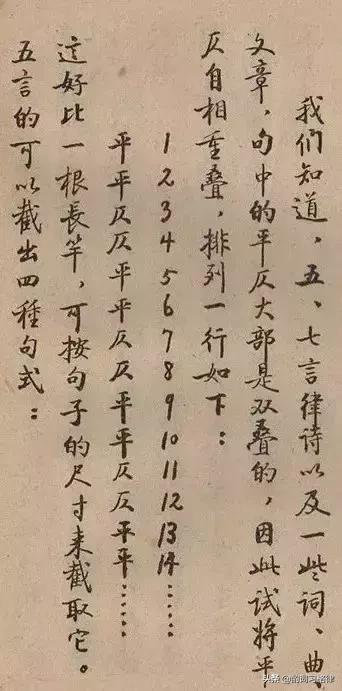 我们知道，五、七言律诗以及一些词、曲、
文章，句中的平仄大部是双叠的，因此试将平
仄自相重叠，排列一行如下：
1 2 3 4 5 6 7 8 9 10 11 12 13 14……
平平仄仄平平仄仄平平仄仄平平……
這好比一根長竿，可按句子的尺寸来截取它。
五言的可以截出四種句式：